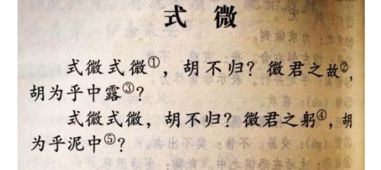 式微
式微式微①，胡不归？微君之故②，
胡为乎中露③？
式微式微，胡不归？微君之躬④，胡
为乎泥中⑤？